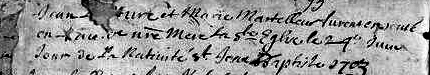 Jean et Marie Martelleur furent
en face de nre Mere la Ste Eglise le 24e Juin
Jour de La Nativité St Jean Baptiste 1703